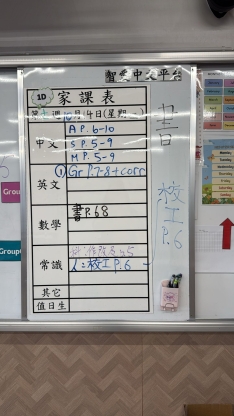 智愛中文平台
1D 家課表
10月14日(星期一)
中文
A P.6-10
S P.5-9
M P.5-9
英文
① Gr P.7-8 + corr
數學
書P.68
常識
人:校工 P.6
其它
值日生
書
校工
P.6
Group
Group